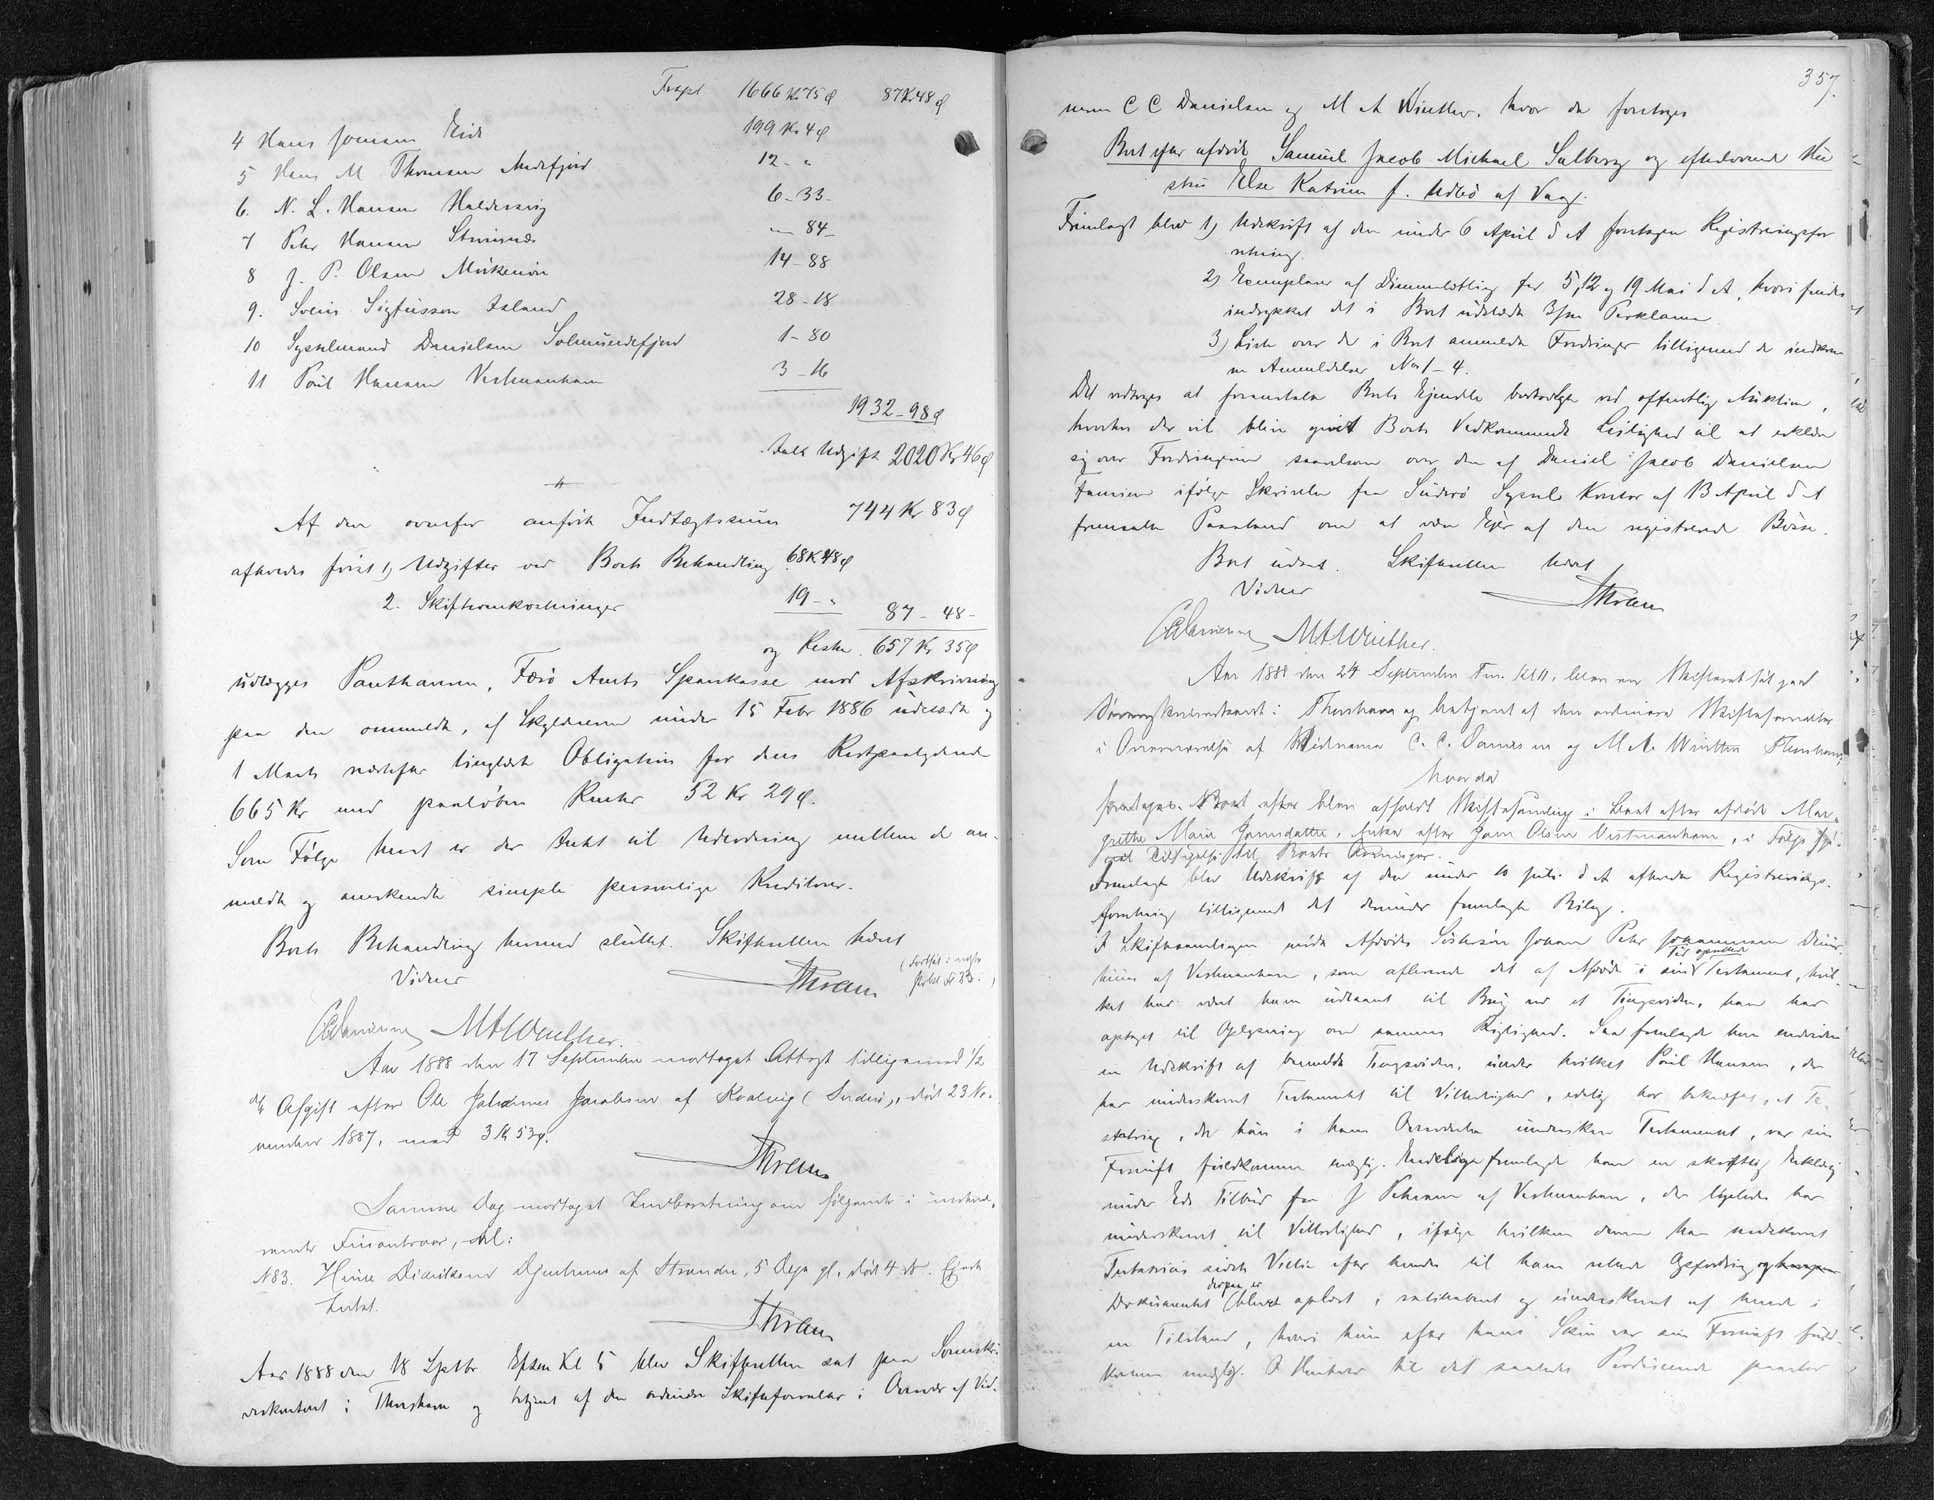 Trspt 1666 Kr 75 Ø 87 Kr 48 Ø
4 Hans Joensen Eide 199 Kr 4 Ø
5 Hans M Thomsen Andefjord 12 - "
6. N. L. Hansen Haldersvig 6 - 33 -
7 Peter Hansen Strømnæs " - 84 -
8 J. P. Olsen Mikenøn 14 - 88
9. Svein Sigfusson Island 28 - 18
10 Sysselmand Danielsen Solmundefjord 1 - 80
11 Poul Hansen Vestmanhavn 3 - 16
1932 - 98 Ø
Talt Udgift 2020 Kr 46 Ø
Af den ovenfor anførte Indtægtssum 744 Kr 83 Ø
afholdes først 1) Udgifter ved Boets Behandling 68 Kr 48 Ø
2. Skifteomkostninger 19 - " 87 - 48 -
og Resten 657 Kr. 35 Ø
udlægges Panthaveren, Færø Amts Sparekasse mod Afskrivning
paa den ommeldte, af Skyldneren under 15 Febr 1886 udstedte og
1 Marts næstefter tinglæste Obligation for dens Restpaalydende
665 Kr med paaløbne Renter 52 Kr 29 Ø.
Som Følge heraf er der Intet til Udlodning mellem de an-
meldte og anerkendte simple personlige Kreditorer.
Boets Behandling hermed sluttet. Skifteretten hævet
Vidner Thram
CCDanielsen M.A. Winther.
Aar 1888 den 17 September modtaget Attest tilligemed 1/2
% Afgift efter Ole Johannes Jacobsen af Kvalvig (Suderø), død 23 No-
vember 1887, med 3 Kr 53 Ø.
Thram
Samme Dag modtaget Indberetning om følgende i indevæ-
rende Finantsaar, dl:
N 83. Heine Didriksens Djentrums af Strander, 5 Dage gl. død 4 ds. Ejede
Intet.
Thram
Aar 1888 den 18 Septbr Efterm Kl 5 blev Skifteretten sat paa Sorenskri-
verkontoret i Thorshavn og betjent af den ordinære Skifteforvalter i Overvær af Vid-
357.
nerne C C Danielsen og M A Winther, hvor da foretoges
Boet efter afdøde Samuel Jacob Michael Salberg og efterlevende Hu
stru Else Katrine f. Udbø af Vaag.
Fremlagt blev 1) Udskrift af den under 6 April d A foretagne Registreringsfor
retning.
2) Exemplarer af Dimmalætting for 5, 12 og 19 Mai d A, hvori findes
indrykket det i Boet udstedte 3/m Proklama
3) Liste over de i Boet anmeldte Fordringer tilligemed de indkom
ne Anmeldelser No 1 - 4.
Det vedtoges at foranstalte Boets Ejendele bortsolgte ved offentlig Auktion,
hvorhos der vil blive givet Boets Vedkommende Leilighed til at erklære
sig over Fordringerne saavelsom over den af Daniel Jacob Danielsen
Famien ifølge Skrivelse fra Suderø Syssels Kontor af 13 April d A
fremsatte Paastand om at være Ejer af den registrerede Bøsse.
Boet udsat. Skifteretten hævet
Vidner Thram
CCDanielsen M.A. Winther.
Aar 1888 den 24 September Fm. Kl 11, blev en Skifteret sat paa
Sorenskriverkontoret i Thorshavn og betjent af den ordinære Skifteforvalter
i Overværelse af Vidnerne C. C. Danielsen og M A. Winther Thorshavn,
hvor da
foretages. Boet efter blev afholdt Skiftesamling i Boet efter afdøde Mar-
grethe Marie Joensdatter, Enke efter Joen Olsen Vestmanhavn, i Følge
Tilsigelse til Boets Arvinger.
Fremlagt blev Udskrift af den under 10 Juli d A afholdte Registrerings-
forretning tilligemed det derunder fremlagte Bilag.
I Skiftesamlingen mødte Afdødes Søstersøn Johan Peter Johannesen
af Vestmanhavn, som afleverede det af Afdøde i sin Tid oprettede Testament, hvil-
ket har været ham udlaant til Brug ved et Tingsvidne, han har
optaget til Oplysning om sammes Rigtighed. Saa fremlagde han endvidere
en Udskrift af bemeldte Tingsvidne, under hvilket Poul Hansen, der
har underskrevet Testamentet til Vitterlighed, edelig har bekræftet, at Te-
statrix, da hun i hans Overværelse underskrev Testamentet, var sin
Fornuft fuldkommen mægtig. Endelig fremlagde han en skriftlig Erklæring
under Eds Tilbud fra J Petersen af Vestmanhavn, der ligeledes har
underskrevet til Vitterlighed, ifølge hvilken denne har nedskrevet
Testatricis sidste Villie efter hendes til ham rettede Opfordring og
Dokumentet derpaa er blevet oplæst, ratihaberet og underskrevet af hende i
en Tilstand, hvori hun efter hans Skøn var sin Fornuft fuld-
kommen mægtig. I Henhold til det saaledes Producerede paastod